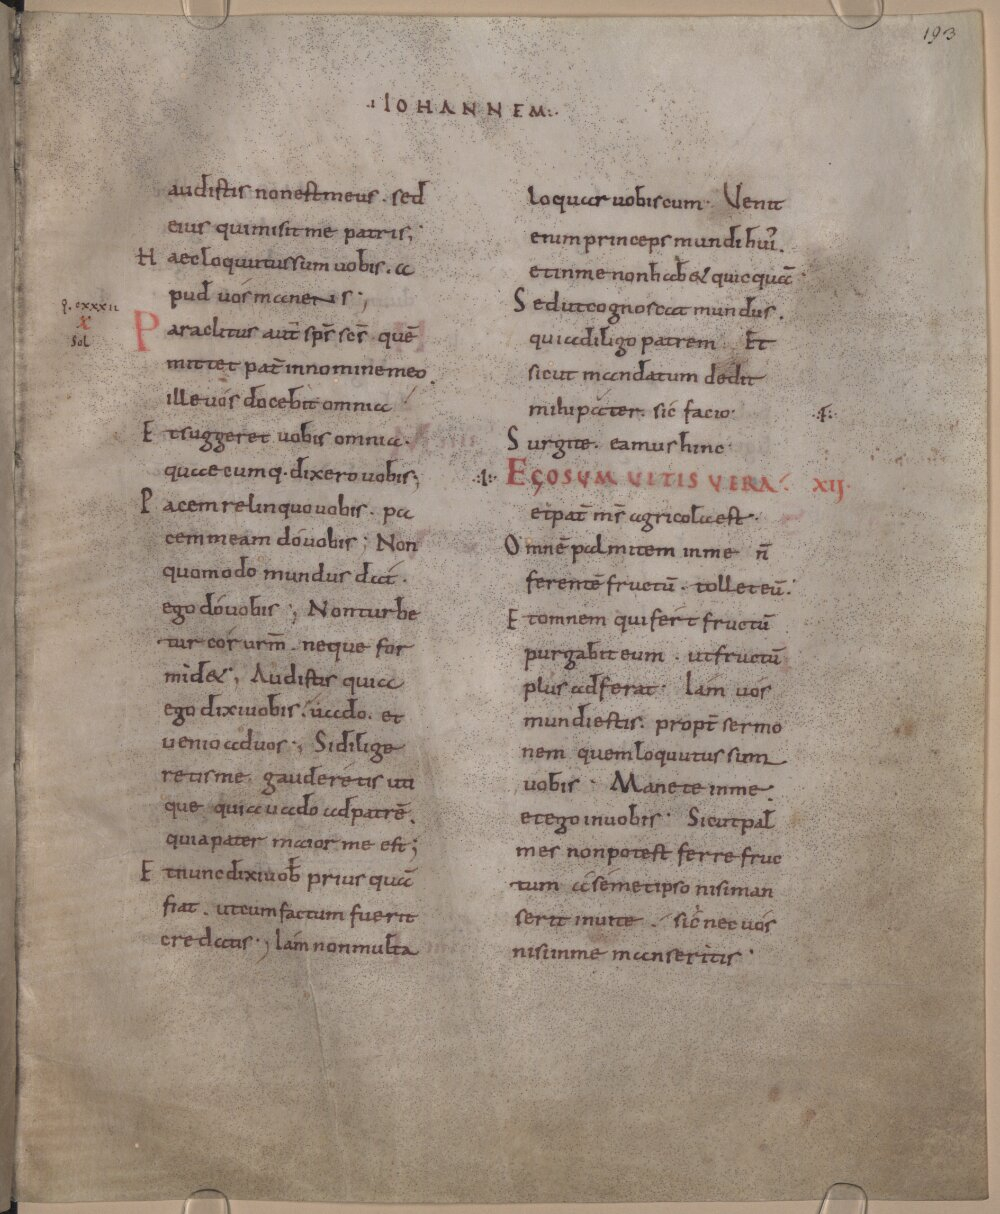 193
·:IOHANNEM:·
audistis non est meus . sed
eius qui misit me patris;
Haec loquutus sum uobis . a
pud uos manens;
p. cxxxii
x
sol
Paraclitus aut̄ sp̄s sc̄s quē
mittet pat̄ in nomine meo.
ille uos docebit omnia
Et suggeret uobis omnia.
quaecumq· dixero uobis;
Pacem relinquo uobis . pa
cem meam dó uobis ; Non
quomodo mundus dat .
ego dó uobis ; Non turbe
tur cor ur̄m . neque for
mid& ; Audistis quia
ego dixi uobis . uado . et
uenio ad uos ; Si dilige
retis me gauderetis uti
que quia uado ad patrē .
quia pater maior me est ;
Et nunc dixi uob̄ prius quā
fiat . ut cum factum fuerit
credatis ; Iam non multa
loquar uobiscum· Venit
enim princeps mundi hui᷒.
et in me non hab& quicquā·
Sed ut cognoscat mundus.
quia diligo patrem Et
sicut mandatum dedit
mihi pater. sic facio·
Surgite. eamus hinc·
EGO SUM UITIS VERA· XII·
et pat̄ m̄s agricola est·
Omnē palmitem in me n̄
ferentē fructū . tollet eū.
Et omnem qui fert fructū
purgabit eum . ut fructū
plus adferat· Iam uos
mundi estis. propt̄ sermo
nem quem loquutus sum
uobis · Manete in me·
et ego in uobis · Sicut pal
mes non potest ferre fruc
tum a sémetipso nisi man
serit in uite . sic nec uos
nisi in me manseritis ·